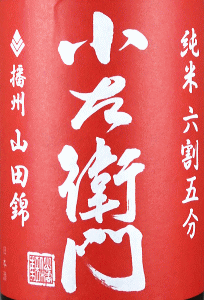 純米 六割五分
小左衛門
播州 山田錦